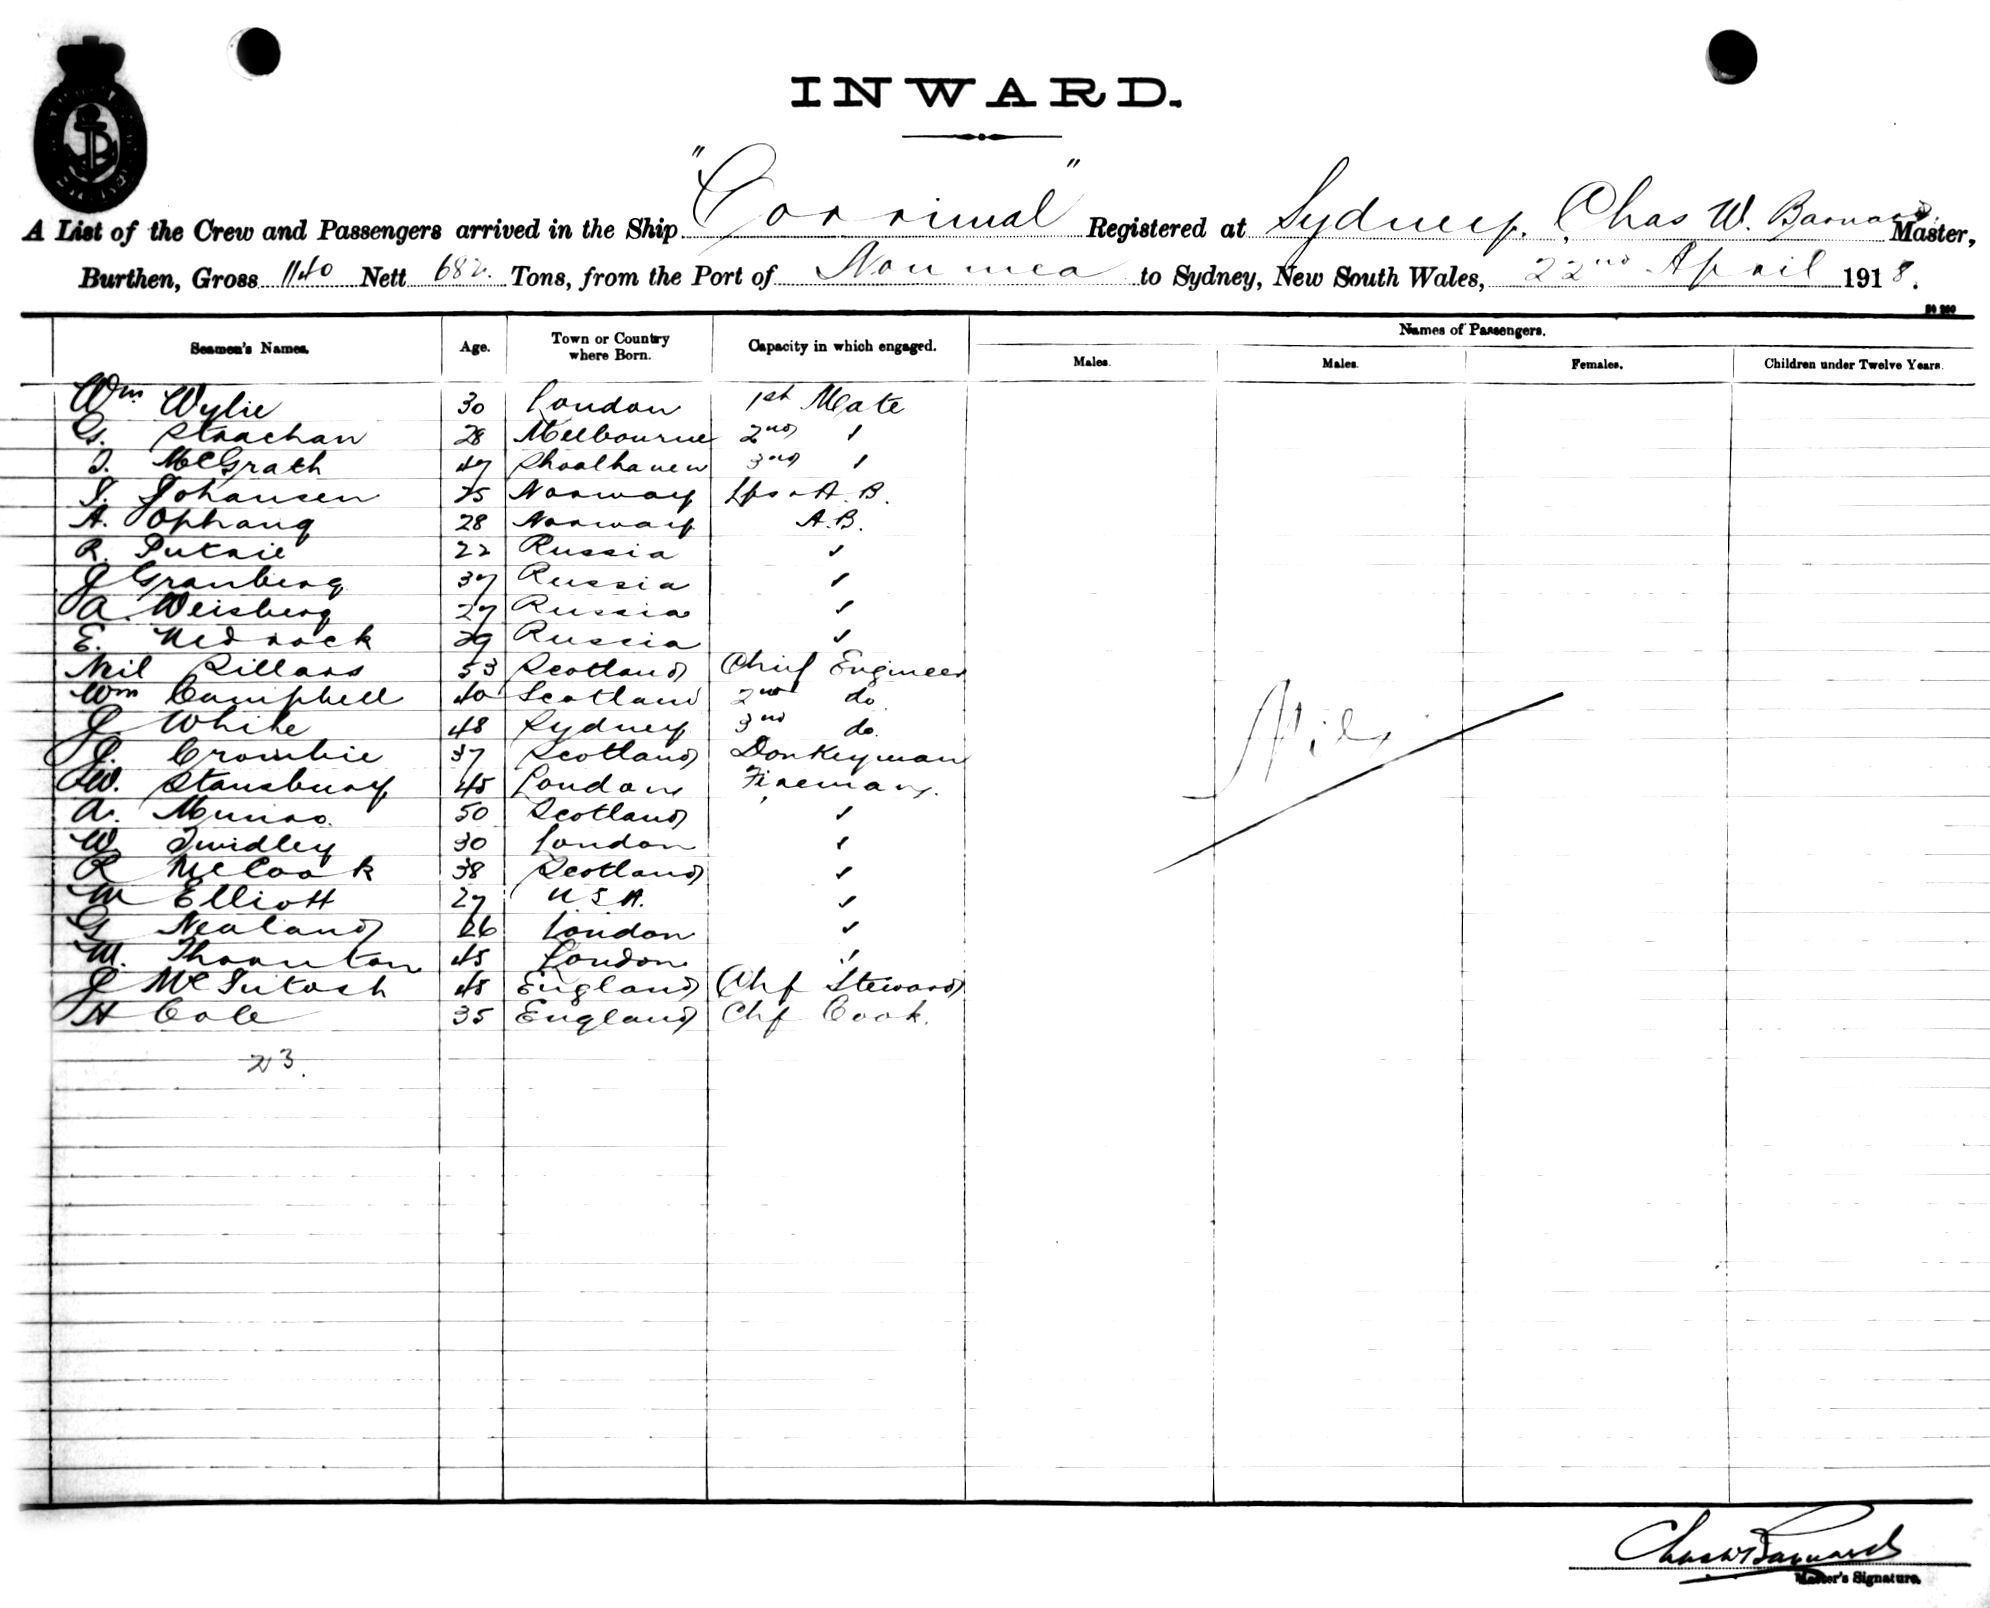 INWARD.
A List of the Crew and Passengers arrived in the Ship "Corrimal" Registered at Sydney. Chas W. Barnard Master,
Burthen, Gross 1140 Nett 682 Tons, from the Port of Noumea to Sydney, New South Wales, 22nd April 1918.
Names of Passengers.
Seamen's Names. Age. Town or Country where Born. Capacity in which engaged. Males. Males. Females. Children under Twelve Years.
Wm Wylie 30 London 1st Mate
G. Strachan 28 Melbourne 2nd "
J. McGrath 47 Shoalhaven 3rd "
J. Johansen 25 Norway A.B.
A. Ophaug 28 Norway A.B.
R. 22 Russia "
J Granberg 37 Russia "
A. Weisberg 27 Russia "
E. Russia "
Neil Sillars 53 Scotland Chief Engineer
Wm Campbell 40 Scotland 2nd do
J White 48 Sydney 3rd do.
J. Crombie 37 Scotland Donkeyman
W. Stansbury 45 London Fireman.
A. Munro. 50 Scotland "
W 30 London "
R McCook 38 Scotland "
M Elliott 27 U.S.A. "
G Nealand 26 London "
M. Thornton 45 London "
J McIntosh 48 England Chf Steward
H Cole 35 England Chf Cook.
23.
Nil
Chas W Barnard
Master's Signature.